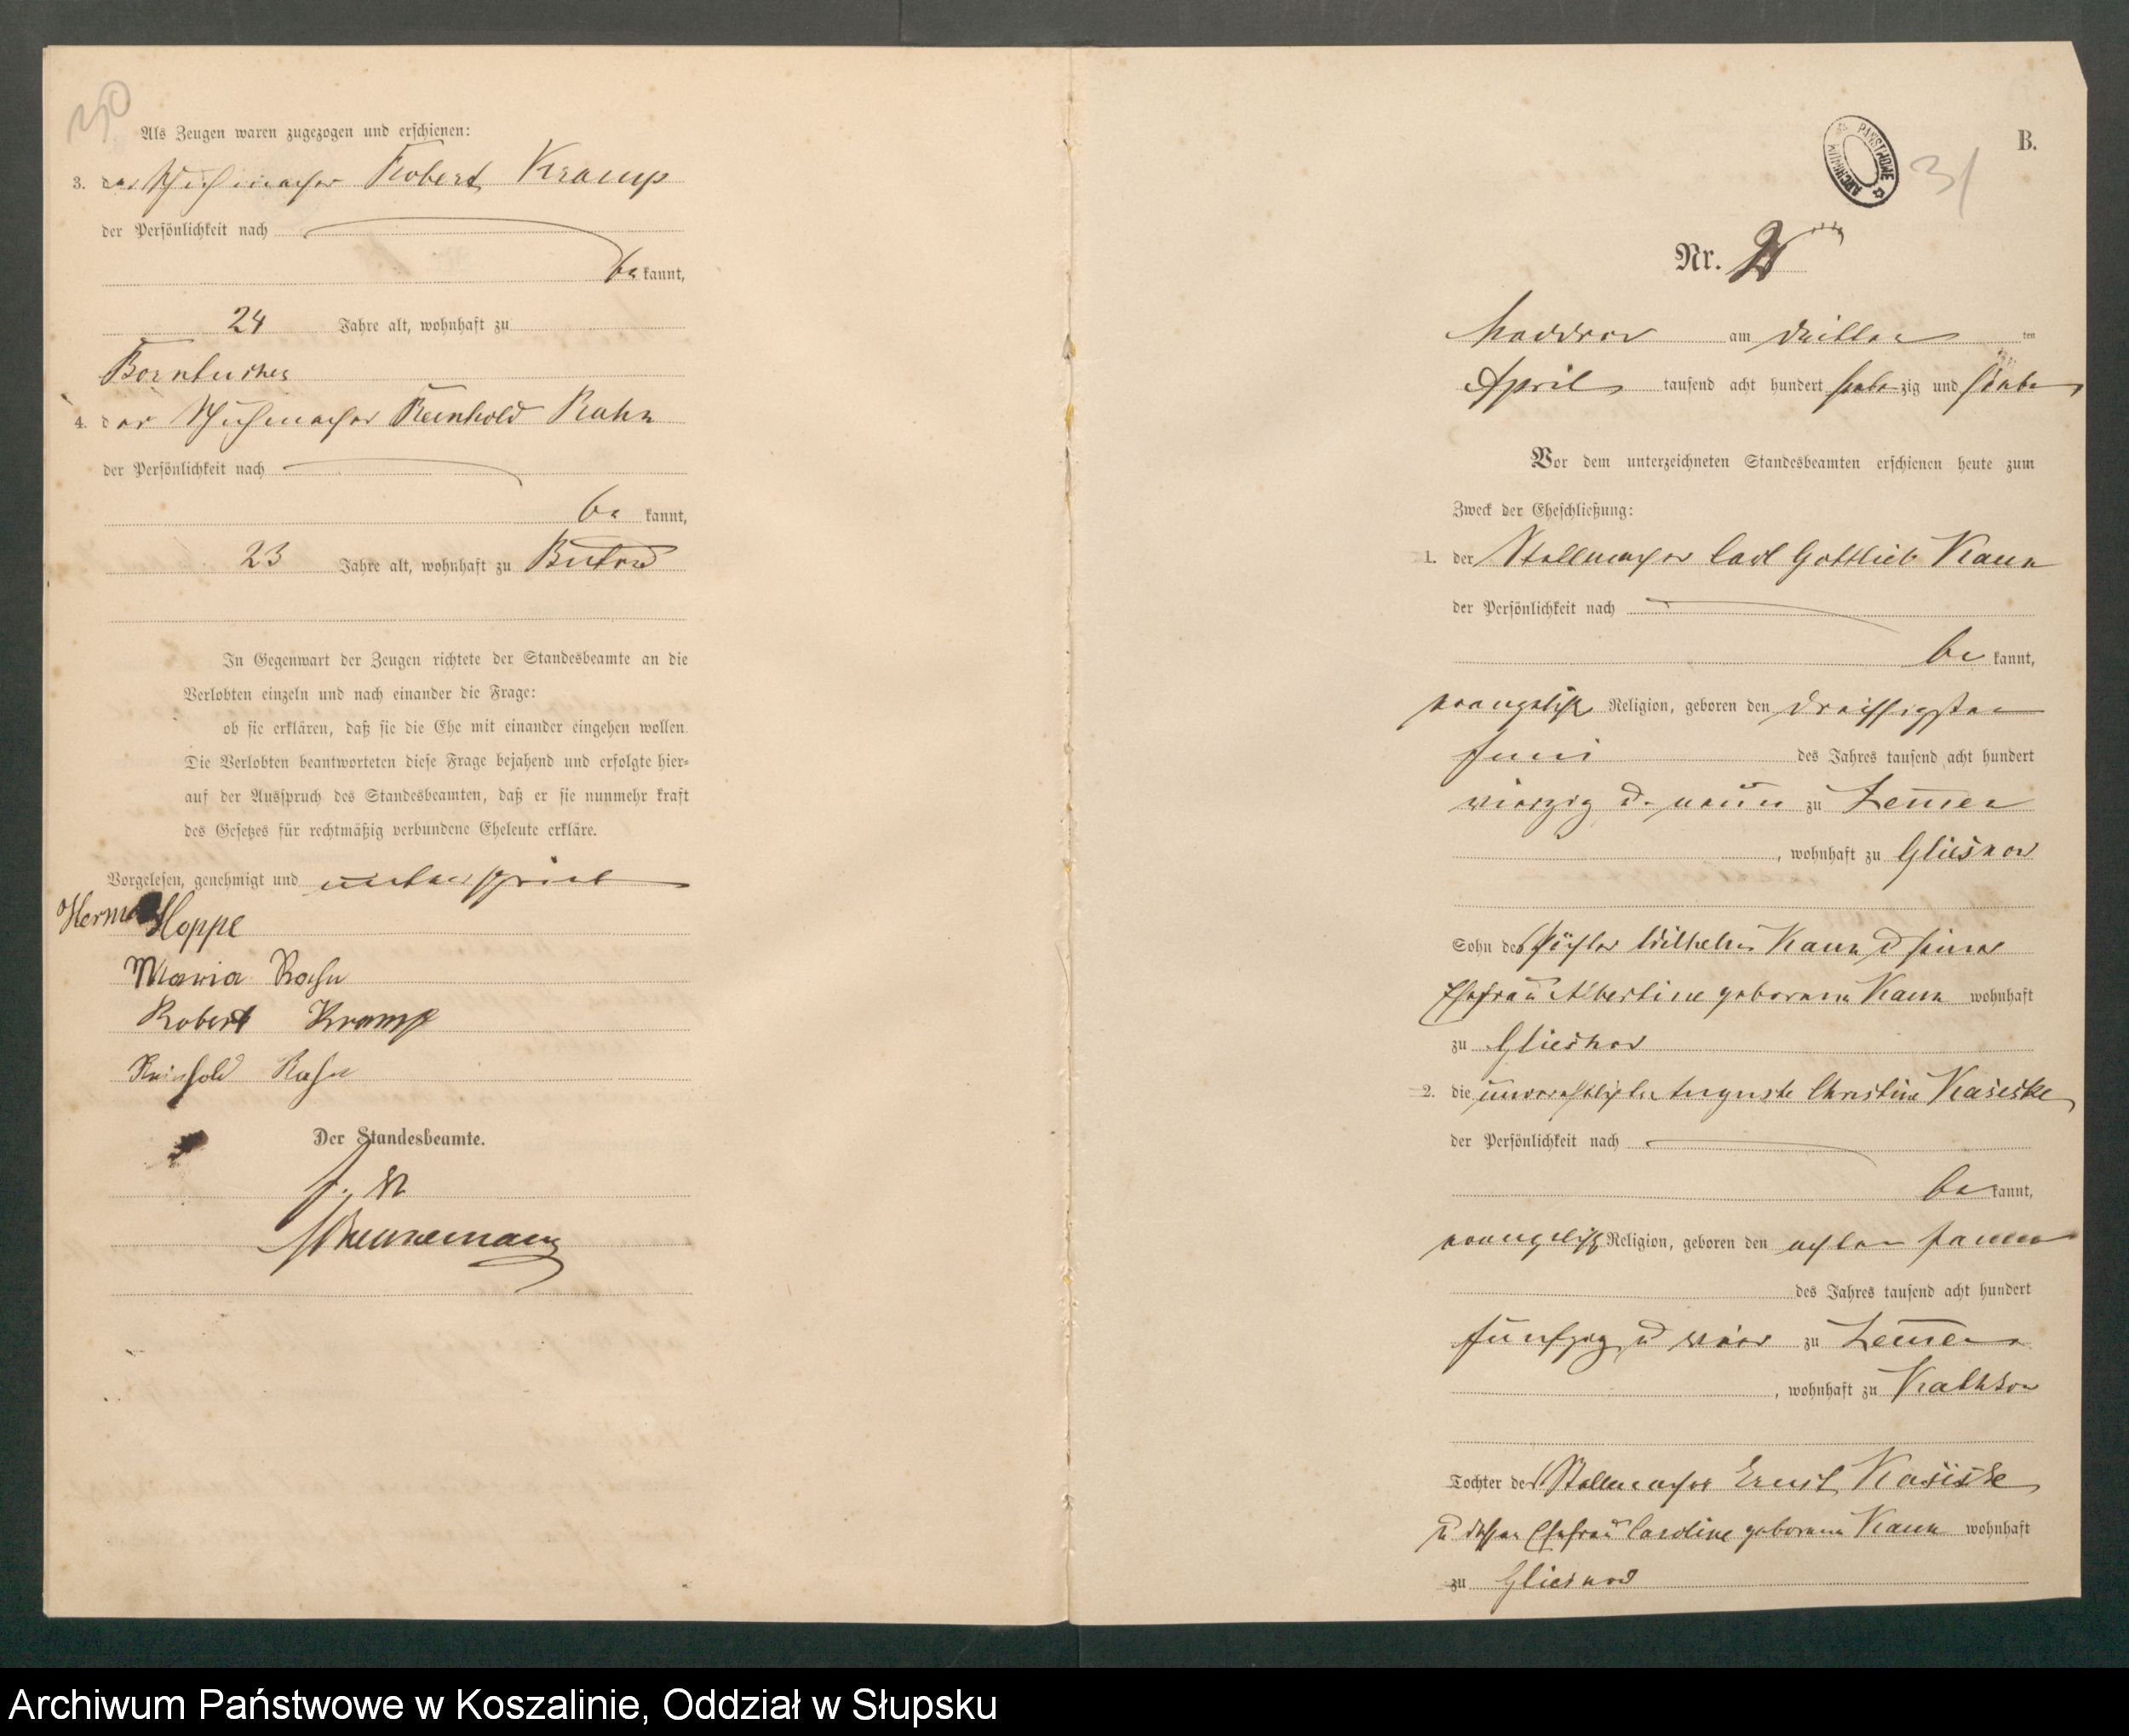 30
Als Zeugen waren zugezogen und erschienen:
3. der Schuhmacher Robert Kramp
der Persönlichkeit nach
bekannt,
24 Jahre alt, wohnhaft zu
Borntuchen
4. der Schuhmacher Reinhold Rahn
der Persönlichkeit nach
be kannt,
23 Jahre alt, wohnhaft zu Butow
In Gegenwart der Zeugen richtete der Standesbeamte an die
Verlobten einzeln und nach einander die Frage:
ob sie erklären, daß sie die Ehe mit einander eingehen wollen.
Die Verlobten beantworteten diese Frage bejahend und erfolgte hier-
auf der Ausspruch des Standesbeamten, daß er sie nunmehr kraft
des Gesetzes für rechtmäßig verbundene Eheleute erkläre.
Vorgelesen, genehmigt und unterschrieb
Herman Hoppe
Maria Rahn
Robert Kramp
Reinhold Rahn
Der Standesbeamte.
B.
ARCHIWUM PAŃSTWOWE
31
Nr.
am dritten ten
April tausend acht hundert siebenzig und sieben
Vor dem unterzeichneten Standesbeamten erschienen heute zum
Zweck der Eheschließung:
1. der Stellmacher Carl Gottlieb Kaun
der Persönlichkeit nach
be kannt,
evangelisch Religion, geboren den dreißigsten
Juni des Jahres tausend acht hundert
vierzig u. neun zu Zemmen
, wohnhaft zu Gliesnow
Sohn des Wilhelm Kaun u seiner
Ehefrau Albertine geborene Kaun wohnhaft
zu Gliesnow
2. die unverehelichte Auguste Christine Kasiske
der Persönlichkeit nach
be kannt,
evangelisch Religion, geboren den achten Januar
des Jahres tausend acht hundert
fünfzig u vier zu Zemmen
, wohnhaft zu
Tochter des Stellmacher Ernst Kasiske
u dessen Ehefrau Caroline geborene Kaun wohnhaft
zu Gliesnow
Archiwum Państwowe w Koszalinie, Oddział w Słupsku